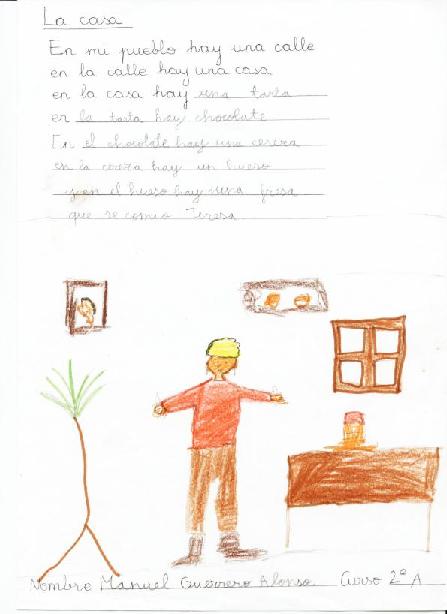 La casa
En mi pueblo hay una calle
en la calle hay una casa
en la casa hay una tarta
en la tarta hay chocolate
En el chocolate hay una cereza
en la cereza hay un hueso
y en el hueso hay una fresa
que se comio Teresa
Nombre Manuel Guerrero Alonso Curso 2º A